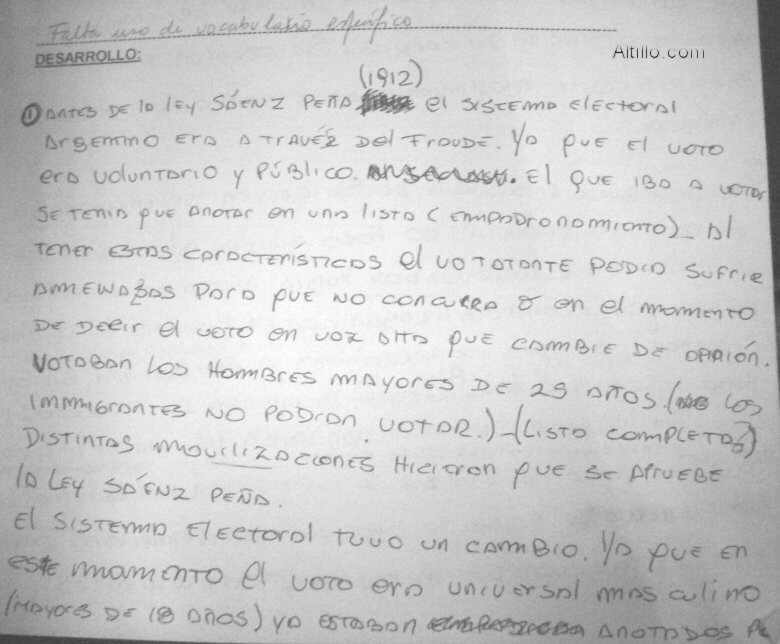 Falta uso de vocabulario específico
DESARROLLO:
Altillo.com
(1912)
① ANTES DE lA LEY SÁENZ PEÑA el SISTEMA ElEctORAl
ARGENTINO ERA A TRAVÉS DEl FRAUDE. YA QUE El VOTO
ERA VOLUNTARIO y PÚBLICO. El QUE IBA A VOTAR
SE TENIA QUE ANOTAR EN UNA lISTA (EMPADRONAMIENTO)_ Al
TENER ESTAS CARACTERÍSTICAS El VOTATANTE PODIA SUFRIR
AMENAZAS PARA QUE NO CONCURRA O en el MOMENTO
DE DECIR El VOTO EN VOZ AltA QUE CAMBIE DE OPINIÓN.
VOTABAN LOS HOMBRES MAYORES DE 25 AÑOS. (LOS
IMMIGRANTES NO PODIAN VOTAR.)_(LISTA COMPLETA)
DISTINTAS MOVILIZACIONES HICIERON QUE SE APRUEBE
lA LEY SÁENZ PEÑA.
El SISTEMA ElECTORAl TUVO UN CAMBIO. YA QUE EN
ESTE MOMENTO El VOTO ERA UNIVERSAl MASCULINO
(MAYORES DE 18 AÑOS) YA ESTABAN ANOTADOS